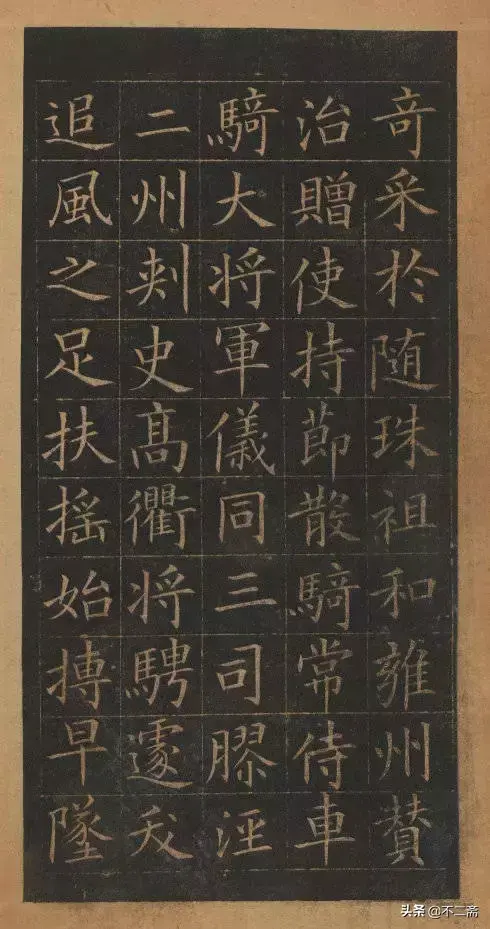 竒采於随珠祖和雍州賛
治贈使持莭散騎常侍車
騎大将軍儀同三司膠涇
二州刾史髙衢将騁遽夭
追風之足扶揺始摶早墜
头条@不二斋